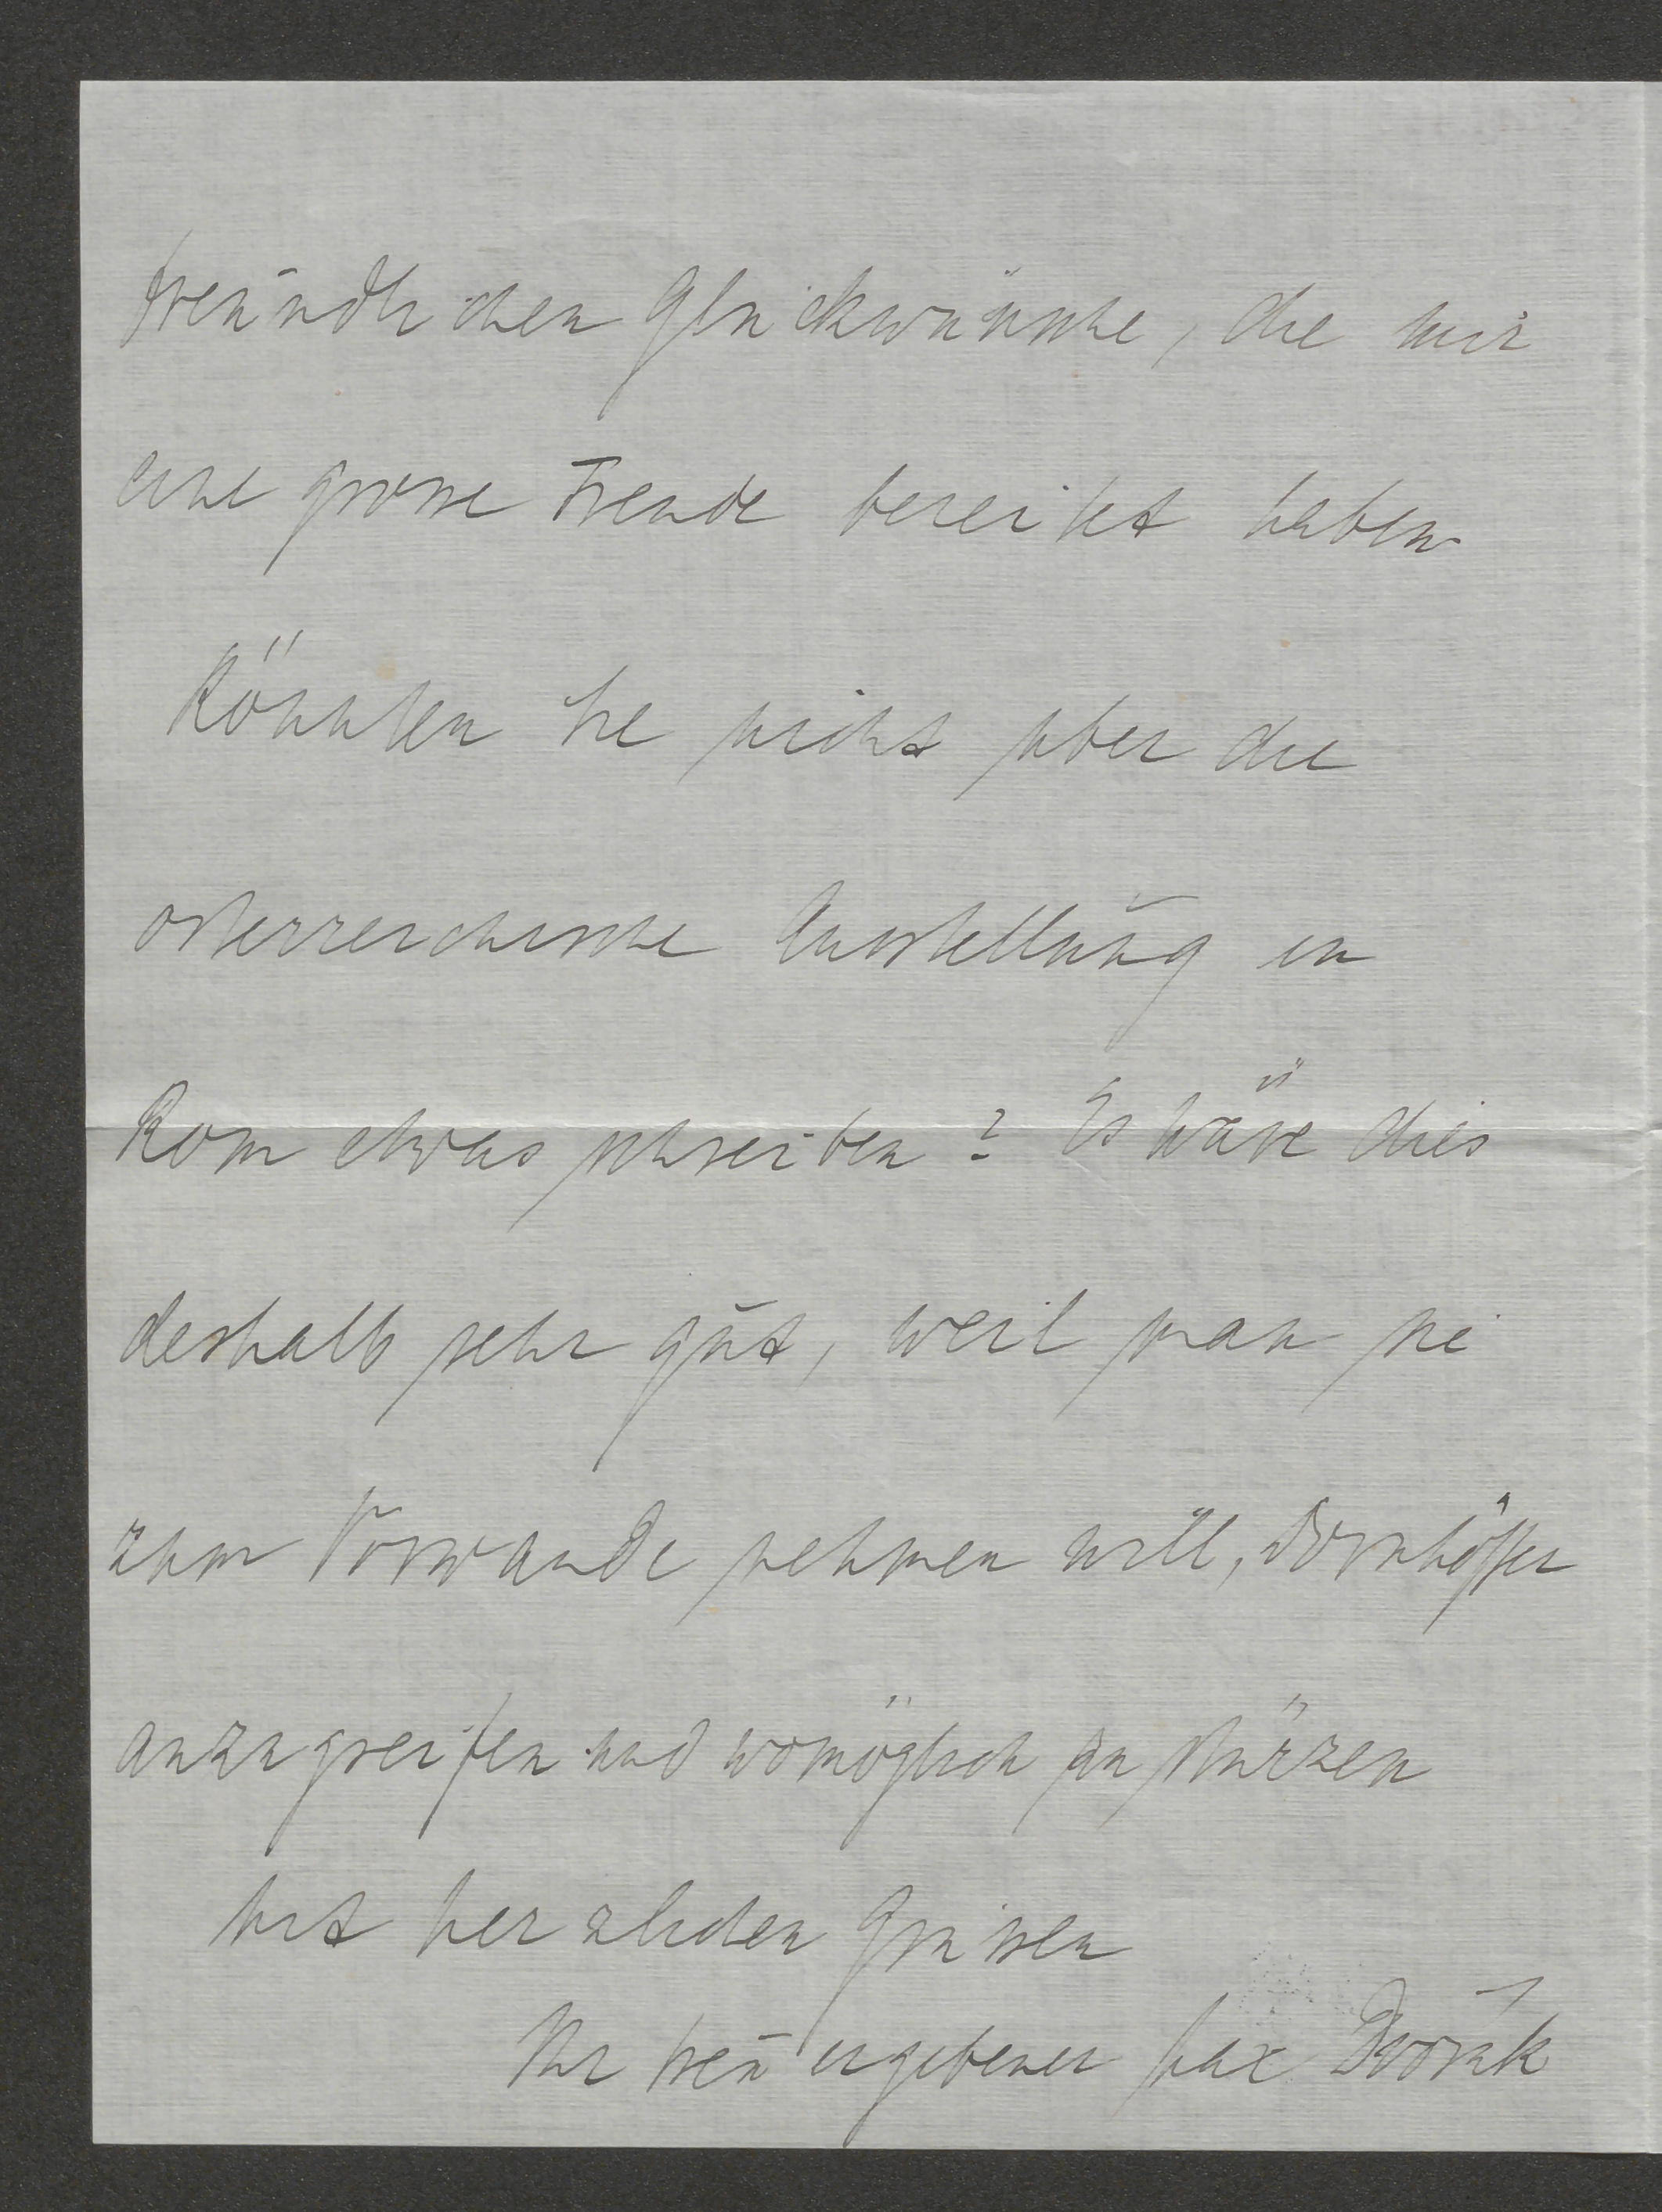 freundlichen Glückwünsche, die mir
eine grosse Freude bereitet haben.
Könnten Sie nicht über die
österreichische Ausstellung in
Rom etwas schreiben? Es wäre dies
deshalb sehr gut, weil man sie
zum Vorwande nehmen will, Dörnhöffer
anzugreifen und womöglich zu stürzen
Mit herzlichen Grüssen
Ihr treu ergebener Max Dvořák